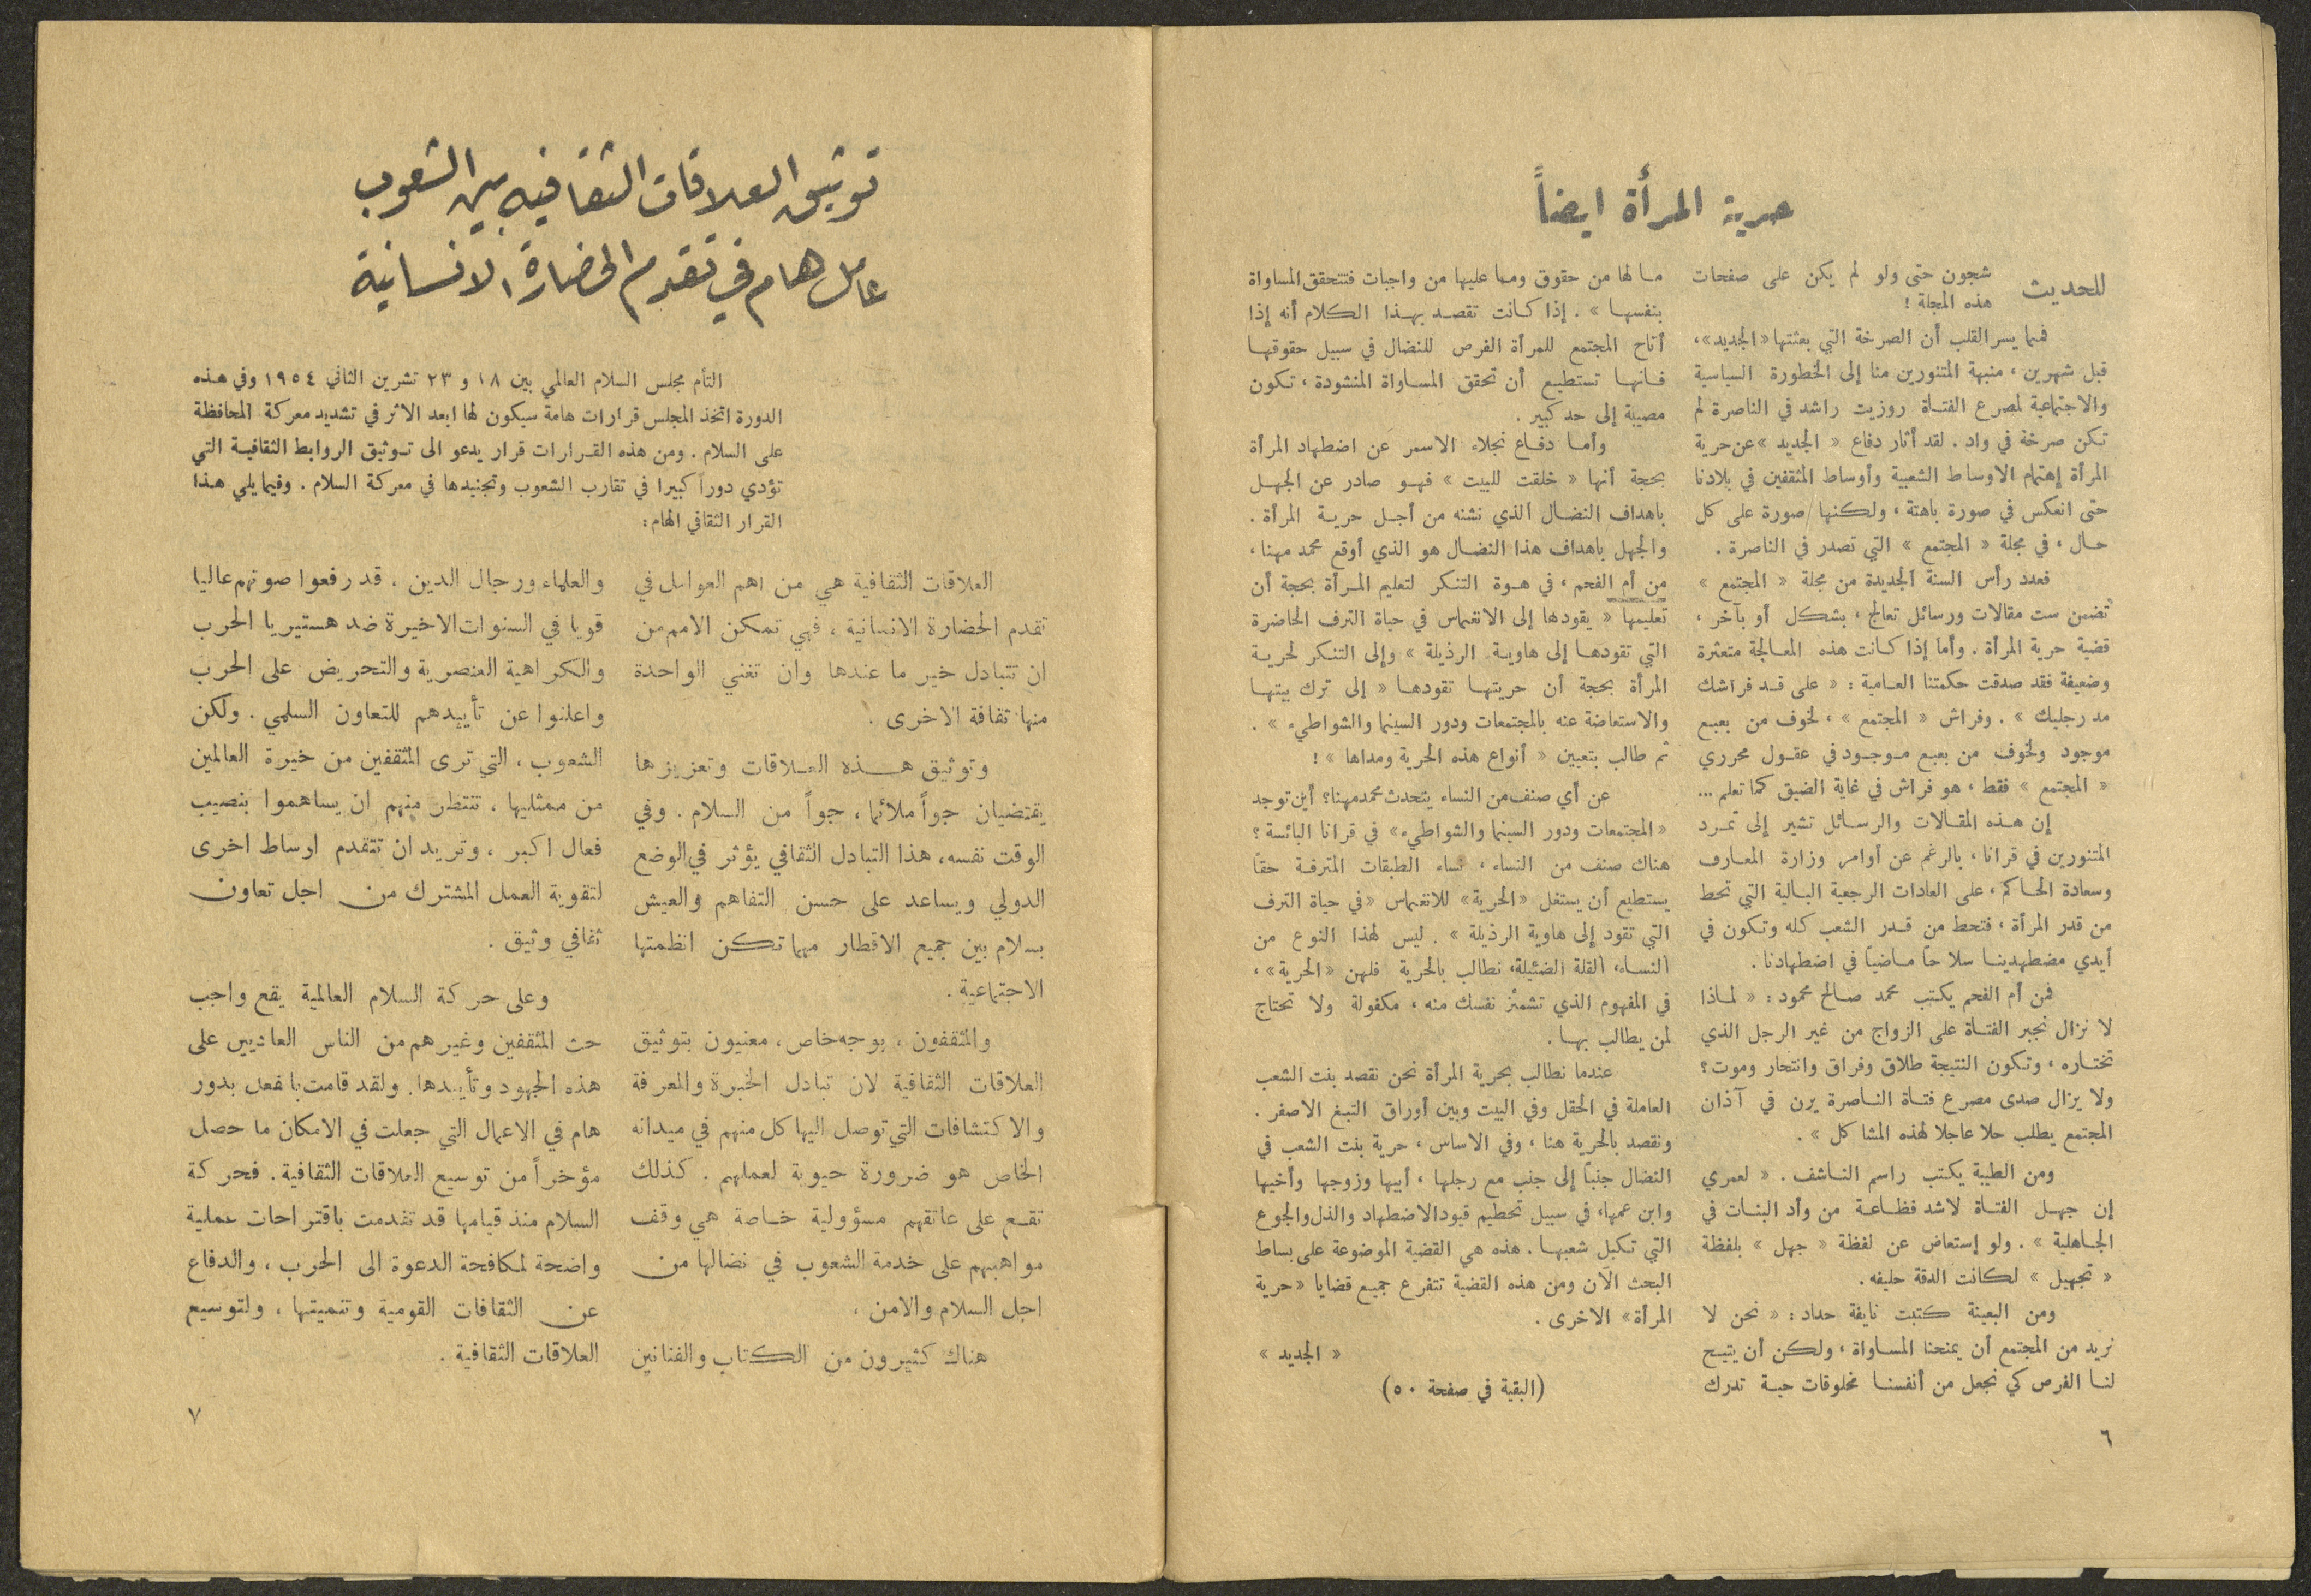 حرية المرأة ايضاً
للحديث شجون حتى ولو لم يكن على صفحات
هذه المجلة !
فمما يسر القلب أن الصرخة التي بعثتها «الجديد»،
قبل شهرين ، منبهة المتنورين منا إلى الخطورة السياسية
والاجتماعية لمصرع الفتاة روزيت راشد في الناصرة لم
تكن صرخة في واد . لقد أثار دفاع « الجديد » عن حرية
المرأة إهتمام الاوساط الشعبية وأوساط المثقفين في بلادنا
حتى انعكس في صورة باهتة ، ولكنها صورة على كل
حال ، في مجلة « المجتمع » التي تصدر في الناصرة .
فعدد رأس السنة الجديدة من مجلة « المجتمع »
تضمن ست مقالات ورسائل تعالج ، بشكل أو بآخر ،
قضية حرية المرأة . وأما إذا كانت هذه المعالجة متعثرة
وضعيفة فقد صدقت حكمتنا العامية : « على قد فراشك
مد رجليك » . وفراش « المجتمع » ، لخوف من بعبع
موجود ولخوف من بعبع موجود في عقول محرري
« المجتمع » فقط ، هو فراش في غاية الضيق كما تعلم ...
إن هذه المقالات والرسائل تشير إلى تمرد
المتنورين في قرانا ، بالرغم عن أوامر وزارة المعارف
وسعادة الحاكم ، على العادات الرجعية البالية التي تحط
من قدر المرأة ، فتحط من قدر الشعب كله وتكون في
أيدي مضطهدينا سلاحاً ماضياً في اضطهادنا .
فمن أم الفحم يكتب محمد صالح محمود : « لماذا
لا نزال نجبر الفتاة على الزواج من غير الرجل الذي
تختاره ، وتكون النتيجة طلاق وفراق وانتحار وموت ؟
ولا يزال صدى مصرع فتاة الناصرة يرن في آذان
المجتمع يطلب حلا عاجلا لهذه المشاكل » .
ومن الطيبة يكتب راسم الناشف . « لعمري
إن جهل الفتاة لاشد فظاعة من وأد البنات في
الجاهلية » . ولو إستعاض عن لفظة « جهل » بلفظة
« تجهيل » لكانت الدقة حليفه .
ومن البعينة كتبت نايفة حداد : « نحن لا
نريد من المجتمع أن يمنحنا المساواة ، ولكن أن يتيح
لنا الفرص كي نجعل من أنفسنا مخلوقات حية تدرك
ما لها من حقوق وما عليها من واجبات فتتحقق المساواة
بنفسها » . إذا كانت تقصد بهذا الكلام أنه إذا
أتاح المجتمع للمرأة الفرص للنضال في سبيل حقوقها
فانها تستطيع أن تحقق المساواة المنشودة ، تكون
مصيبة إلى حد كبير .
وأما دفاع نجلاء الاسمر عن اضطهاد المرأة
بحجة أنها « خلقت للبيت » فهو صادر عن الجهل
باهداف النضال الذي نشنه من أجل حرية المرأة .
والجهل باهداف هذا النضال هو الذي أوقع محمد مهنا ،
من أم الفحم ، في هوة التنكر لتعليم المرأة بحجة أن
تعليمها « يقودها إلى الانغماس في حياة الترف الحاضرة
التي تقودها إلى هاوية الرذيلة » وإلى التنكر لحرية
المرأة بحجة أن حريتها تقودها « إلى ترك بيتها
والاستعاضة عنه بالمجتمعات ودور السينما والشواطيء » .
ثم طالب بتعيين « أنواع هذه الحرية ومداها » !
عن أي صنف من النساء يتحدث محمد مهنا ؟ أين توجد
«المجتمعات ودور السينما والشواطيء» في قرانا البائسة ؟
هناك صنف من النساء ، نساء الطبقات المترفة حقاً
يستطيع أن يستغل «الحرية» للانغماس «في حياة الترف
التي تقود إلى هاوية الرذيلة » . ليس لهذا النوع من
النساء، القلة الضئيلة، نطالب بالحرية فلهن «الحرية» ،
في المفهوم الذي تشمئز نفسك منه ، مكفولة ولا تحتاج
لمن يطالب بها .
عندما نطالب بحرية المرأة نحن نقصد بنت الشعب
العاملة في الحقل وفي البيت وبين أوراق التبغ الاصفر .
ونقصد بالحرية هنا ، وفي الاساس ، حرية بنت الشعب في
النضال جنباً إلى جنب مع رجلها ، أبيها وزوجها وأخيها
وابن عمها، في سبيل تحطيم قيود الاضطهاد والذل والجوع
التي تكبل شعبها . هذه هي القضية الموضوعة على بساط
البحث الآن ومن هذه القضية تتفرع جميع قضايا «حرية
المرأة» الاخرى .
« الجديد »
(البقية في صفحة ٥٠)
٦
توثيق العلاقات الثقافية بين الشعوب
عامل هام في تقدم الحضارة الانسانية
التأم مجلس السلام العالمي بين ١٨ و ٢٣ تشرين الثاني ١٩٥٤ وفي هذه
الدورة اتخذ المجلس قرارات هامة سيكون لها ابعد الاثر في تشديد معركة المحافظة
على السلام . ومن هذه القرارات قرار يدعو الى توثيق الروابط الثقافية التي
تؤدي دوراً كبيرا في تقارب الشعوب وتجنيدها في معركة السلام . وفيما يلي هذا
القرار الثقافي الهام :
العلاقات الثقافية هي من اهم العوامل في
تقدم الحضارة الانسانية ، فهي تمكن الامم من
ان تتبادل خير ما عندها وان تغني الواحدة
منها ثقافة الاخرى .
وتوثيق هذه العلاقات وتعزيزها
يقتضيان جواً ملائما ، جواً من السلام . وفي
الوقت نفسه، هذا التبادل الثقافي يؤثر في الوضع
الدولي ويساعد على حسن التفاهم والعيش
بسلام بين جميع الاقطار مهما تكن انظمتها
الاجتماعية .
والمثقفون ، بوجه خاص ، معنيون بتوثيق
العلاقات الثقافية لان تبادل الخبرة والمعرفة
والاكتشافات التي توصل اليها كل منهم في ميدانه
الخاص هو ضرورة حيوية لعملهم . كذلك
تقع على عاتقهم مسؤولية خاصة هي وقف
مواهبهم على خدمة الشعوب في نضالها من
اجل السلام والامن .
هناك كثيرون من الكتاب والفنانين
والعلماء ورجال الدين ، قد رفعوا صوتهم عاليا
قويا في السنوات الاخيرة ضد هستيريا الحرب
والكراهية العنصرية والتحريض على الحرب
واعلنوا عن تأييدهم للتعاون السلمي . ولكن
الشعوب ، التي ترى المثقفين من خيرة العالمين
من ممثليها ، تنتظر منهم ان يساهموا بنصيب
فعال اكبر ، وتريد ان تتقدم اوساط اخرى
لتقوية العمل المشترك من اجل تعاون
ثقافي وثيق .
وعلى حركة السلام العالمية يقع واجب
حث المثقفين وغيرهم من الناس العاديين على
هذه الجهود وتأييدها . ولقد قامت بالفعل بدور
هام في الاعمال التي جعلت في الامكان ما حصل
مؤخراً من توسيع العلاقات الثقافية . فحركة
السلام منذ قيامها قد تقدمت باقتراحات عملية
واضحة لمكافحة الدعوة الى الحرب ، والدفاع
عن الثقافات القومية وتنميتها ، ولتوسيع
العلاقات الثقافية .
٧